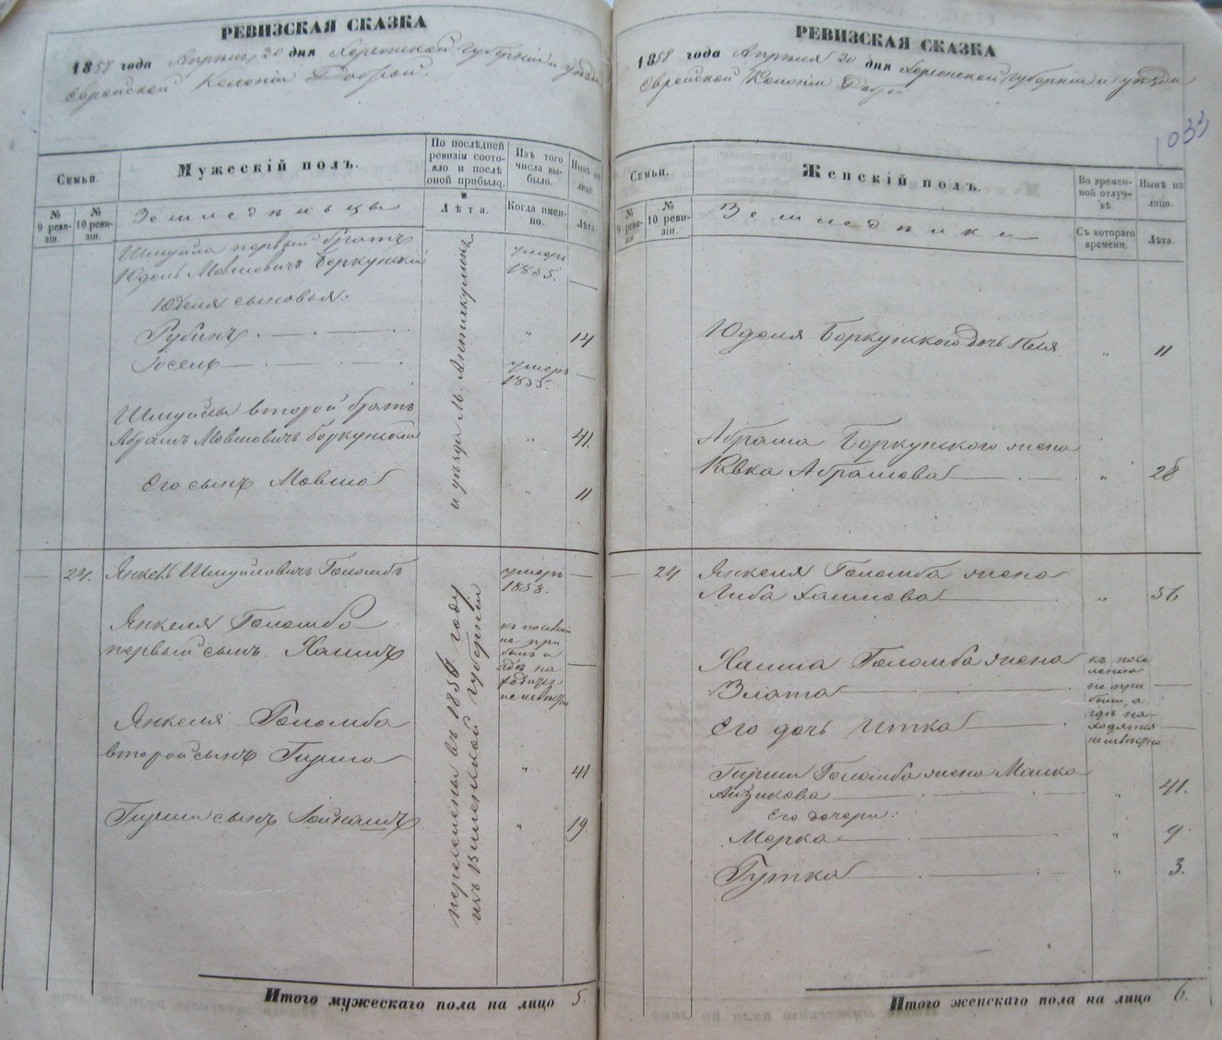 РЕВИЗСКАЯ СКАЗКА
1858 года Апреля 20 дня Херсонской губерніи и уѣзда
Еврейской Колоніи Доброй.
Семьи.
Мужескій полъ.
По послѣдней ревизіи состояло и послѣ оной прибыло.
Изъ того числа выбыло.
Нынѣ на лицо.
№ 9 ревизіи.
№ 10 ревизіи.
Земледѣльцы
Лѣта.
Когда именно.
Лѣта.
Шмуйла первый братъ умеръ
Юдель Мовшовичъ Боркунскій 1855. —
Юделя сыновья:
Рубинъ " 14
Іосель умеръ 1855. —
Шмуйлы второй братъ
Абрамъ Мовшовичъ Боркунскій " 41.
Его сынъ Мовша " 11
и уѣзда
— 24. Янкель Шмуйловичъ Голомбъ умеръ 1858. —
Янкеля Голомба
первый сынъ Хаимъ —
къ поселенію
не при
былъ и
гдѣ на
ходится
неизвѣстно
Янкеля Голомба
второй сынъ Гирша " 41
Гирши сынъ " 19
перечислены въ 1856 году
изъ Виленской губерніи
Итого мужескаго пола на лицо 5.
РЕВИЗСКАЯ СКАЗКА
1858 года Апреля 20 дня Херсонской губерніи и уѣзда
Еврейской Колоніи Доброй
1033
Семьи.
Женскій полъ.
Во временной отлучкѣ.
Нынѣ на лицо.
№ 9 ревизіи.
№ 10 ревизіи.
Земледѣлки
Съ котораго времени.
Лѣта.
Юделя Боркунского дочь Песя " 11
Абрама Боркунского жена
Ривка Абрамова " 28
— 24 Янкеля Голомба жена
Либа Хаимова " 56
Хаима Голомба жена
Злата —
Его дочь Итка —
къ посе
ленію
не при
были, а
гдѣ на
ходятся
неизвѣстно
Гирши Голомба жена Машка
Айзикова " 41.
Его дочери:
Мерка " 9
Гутка " 3.
Итого женскаго пола на лицо 6.